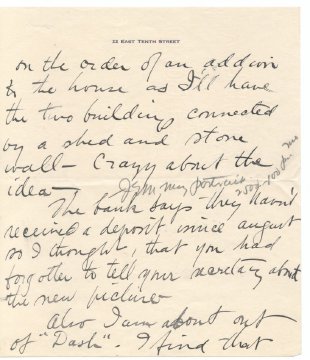 22 EAST TENTH STREET
on the order of an addition
to the house as I'll have
the two buildings connected
by a shed and stone
wall - Crazy about the
idea -
The bank says they haven't
received a deposit since august
so I thought, that you had
forgotten to tell your secretary about
the new picture
Also I am about out
of "Dash". I find that